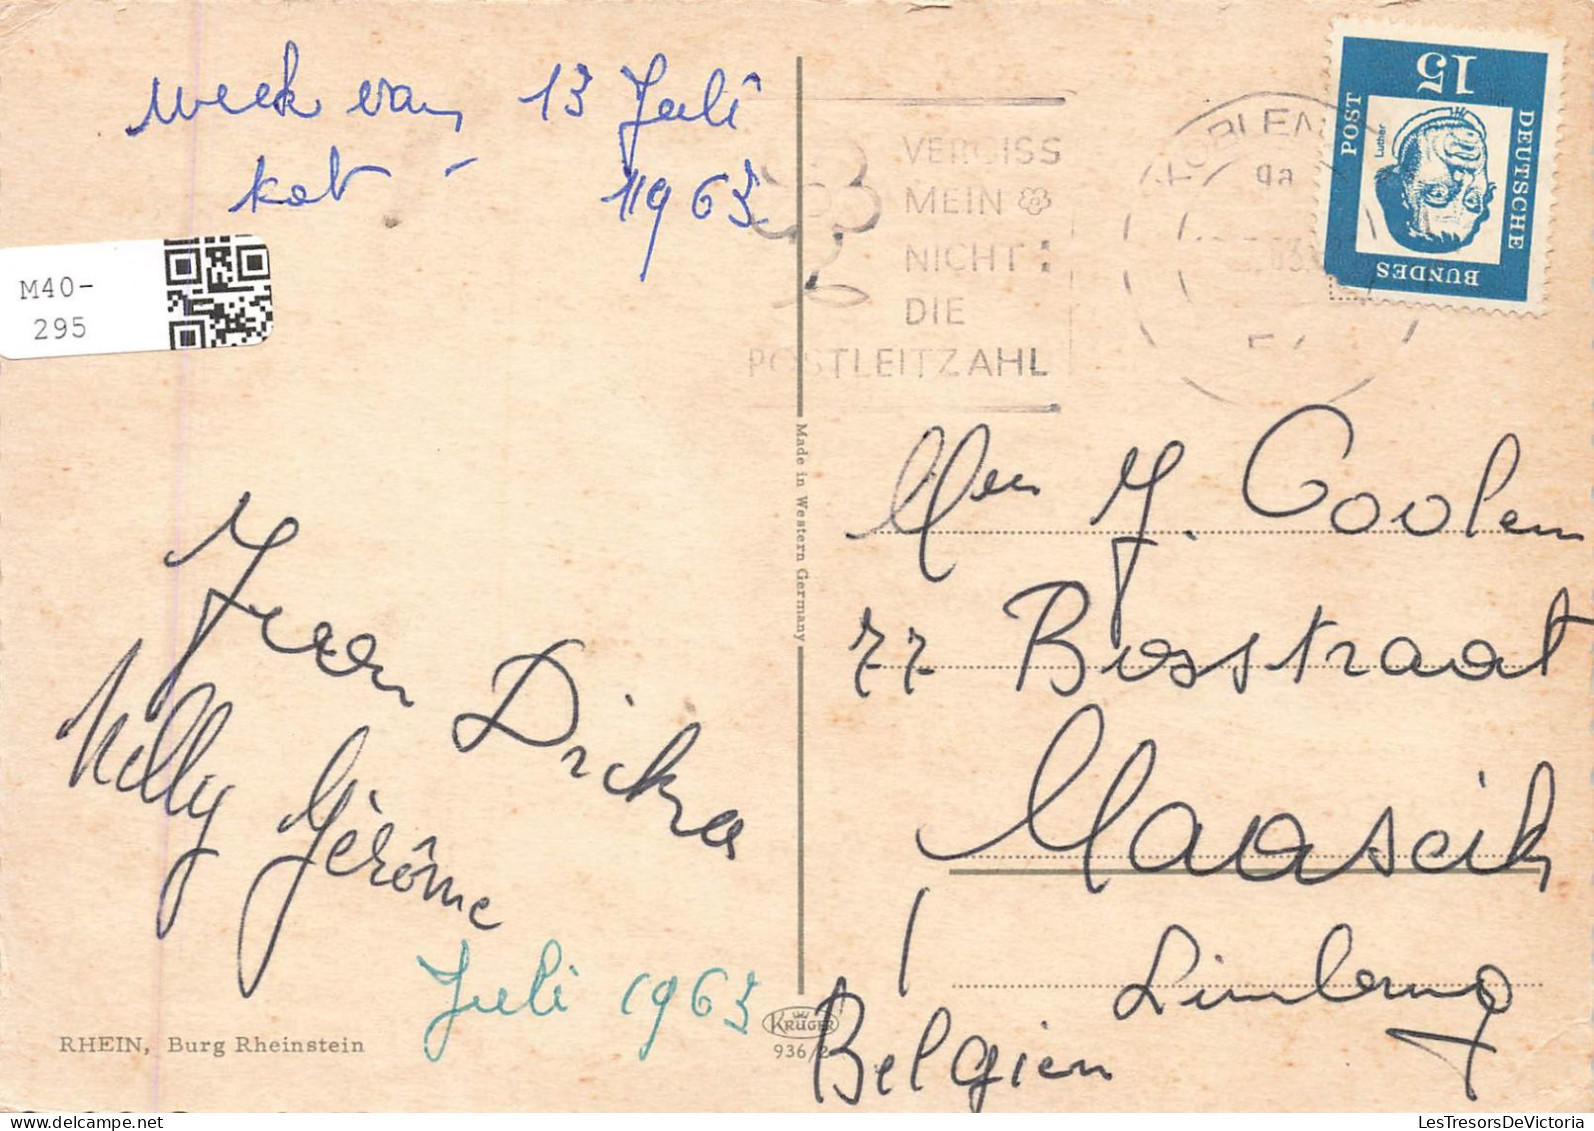 week van 13 Juli
kot - 1963
M40-
295
VERGISS
MEIN
NICHT:
DIE
POSTLEITZAHL
KOBLENZ
9a
15
DEUTSCHE
BUNDES
POST
Luther
Made in Western Germany
Mer J. Coolen
77 Bosstraat
Maaseik
Limburg
Belgien
Dicka
Nelly
Gérôme
Juli 1963
RHEIN, Burg Rheinstein
KRÜGER
936/2
LesTresorsDeVictoria